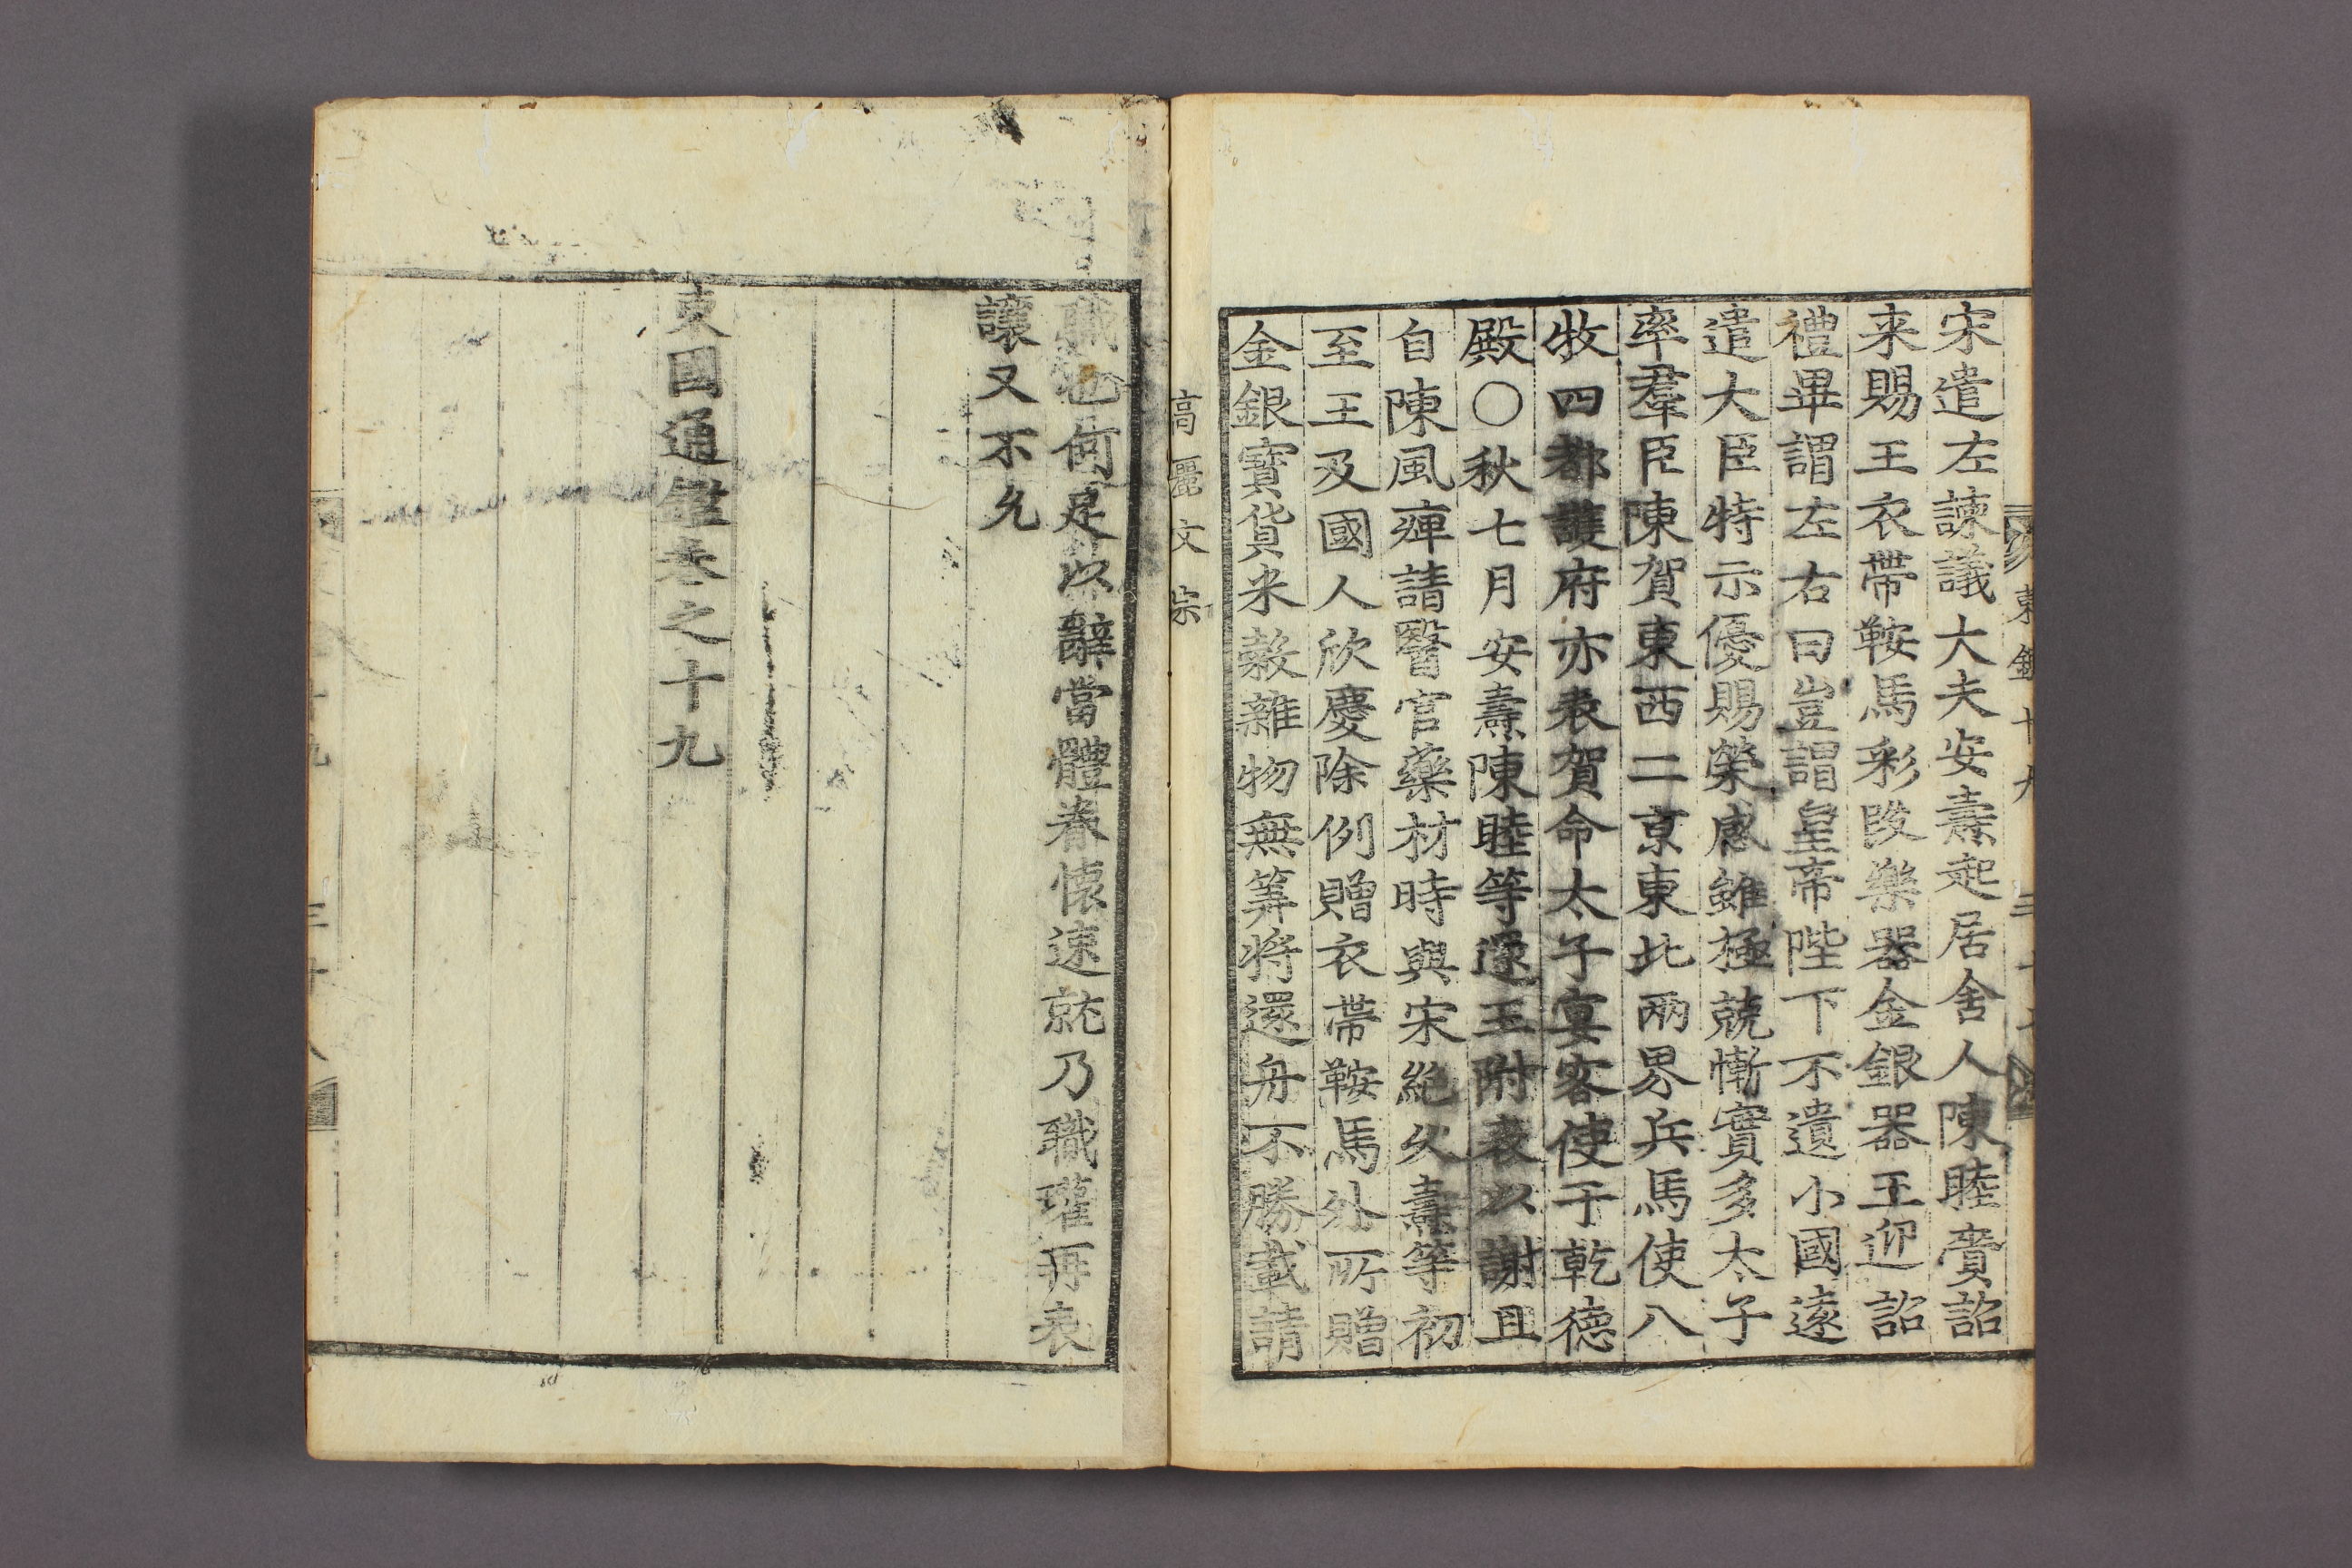 宋遣左諫議大夫安燾起居舍人陳睦賫詔
来賜王衣帶鞍馬彩段樂器金銀器王迎詔
禮畢謂左右曰豈謂皇帝陛下不遺小國遠
遣大臣特示優賜榮感雖極兢慚實多太子
率羣臣陳賀東西二京東北兩界兵馬使八
牧四都護府亦表賀命太子宴客使于乾德
殿○秋七月安燾陳睦等還王附表以謝且
自陳風痺請醫官藥材時與宋絕久燾等初
至王及國人欣慶除例贈衣帶鞍馬外所贈
金銀寶貨米穀雜物無筭將還舟不勝載請
高麗文宗
職也何足以辭當體眷懷速就乃職瓘再表
讓又不允
東國通鑑卷之十九